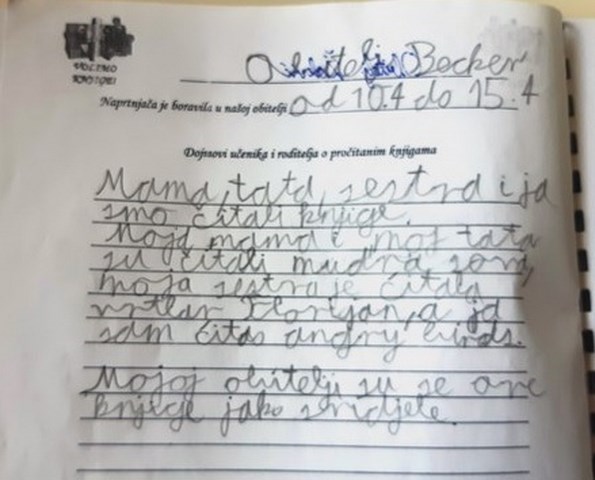 VOLIMO
KNJIGE!
Obitelj Becker
Naprtnjača je boravila u našoj obitelji od 10.4 do 15.4
Dojmovi učenika i roditelja o pročitanim knjigama
Mama, tata, sestra i ja
smo čitali knjige.
Moja mama i moj tata
su čitali mudra sova,
moja sestra je čitala
vrtlar Florijan, a ja
sam čitao angry birds.
Mojoj obitelji su se ove
knjige jako svidjele.